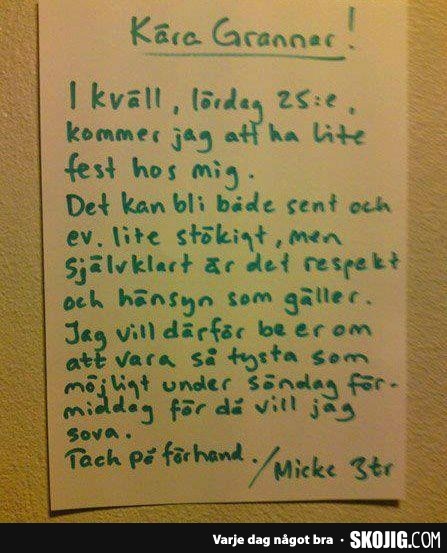 Kära Grannar!
I kväll, lördag 25:e,
kommer jag att ha lite
fest hos mig.
Det kan bli både sent och
ev. lite stökigt, men
självklart är det respekt
och hänsyn som gäller.
Jag vill därför be er om
att vara så tysta som
möjligt under söndag för-
middag för då vill jag
sova.
Tack på förhand. /Micke 3tr
Varje dag något bra · SKOJIG.COM